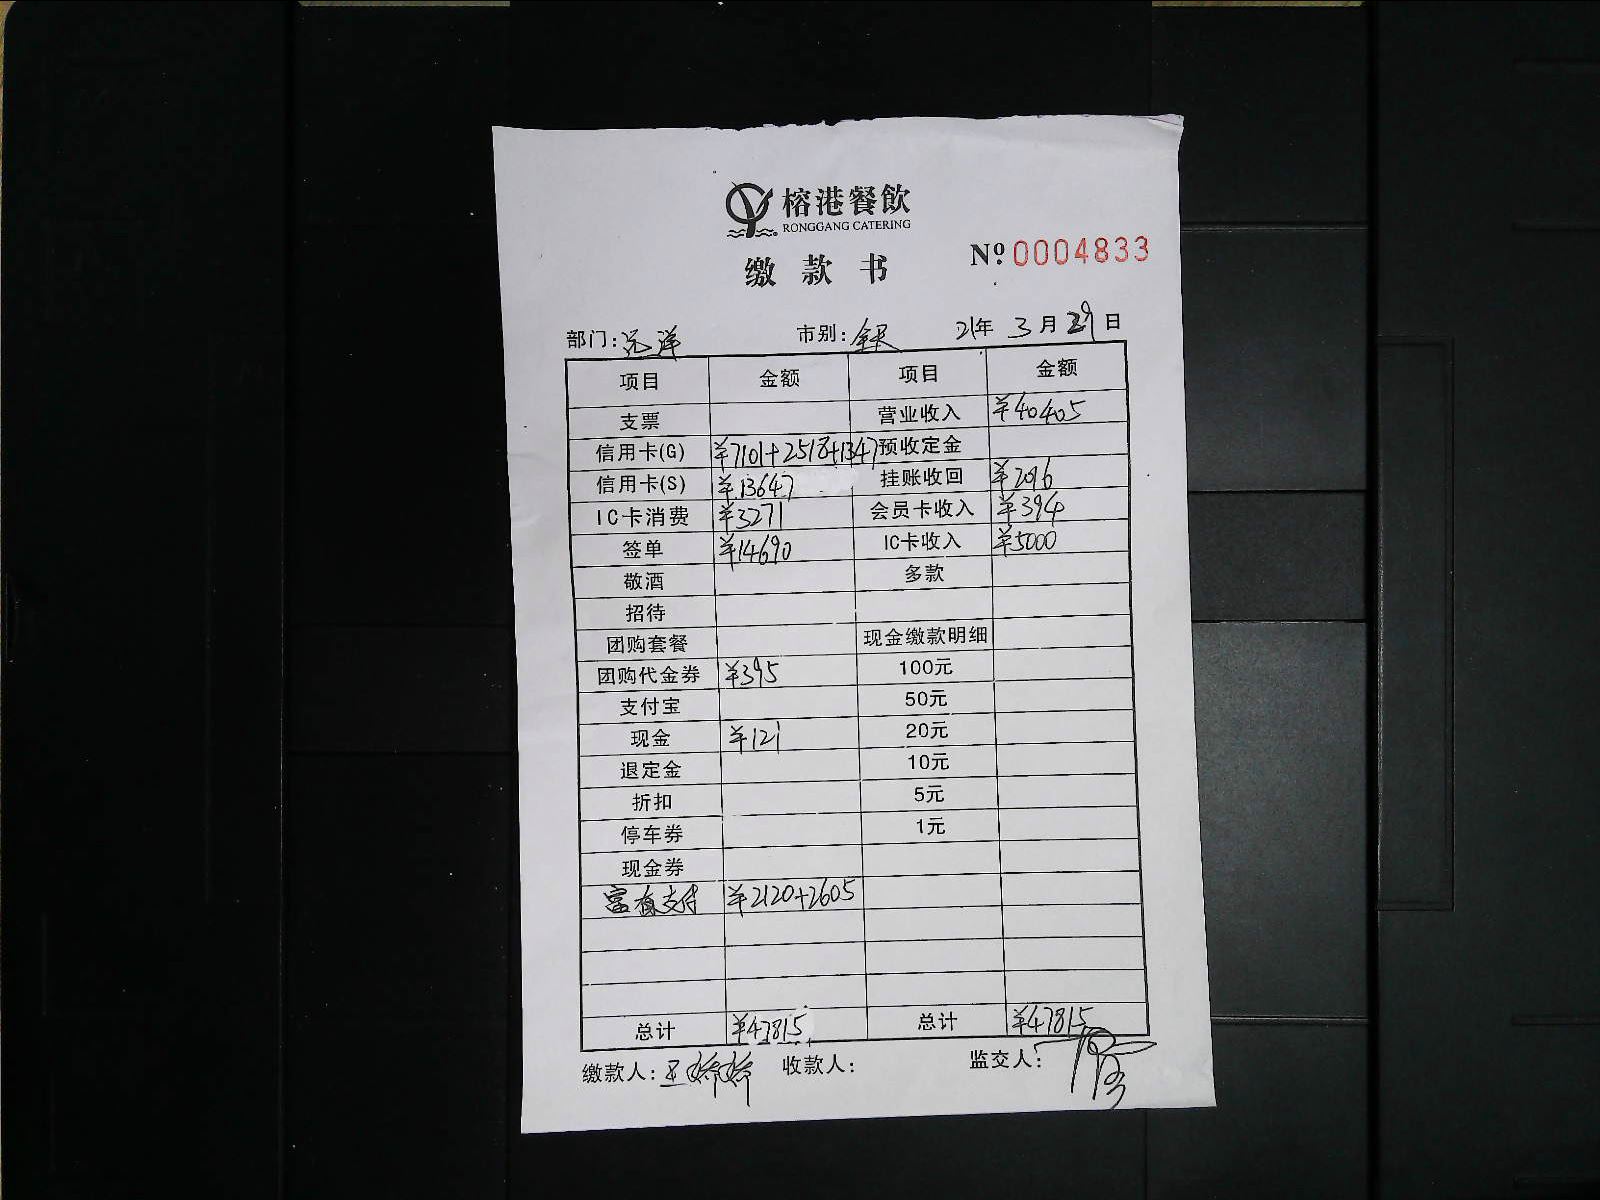 榕港餐飲
RONGGANG CATERING
缴款书
Nº.0004833
部门:远洋 市别:全天 21年 3月 29日
项目 金额 项目 金额
支票 营业收入 ¥40405
信用卡(G) ¥7101+2518+1347 预收定金
信用卡(S) ¥13647 挂账收回 ¥2016
IC卡消费 ¥3271 会员卡收入 ¥394
签单 ¥14690 IC卡收入 ¥5000
敬酒 多款
招待
团购套餐 现金缴款明细
团购代金券 ¥395 100元
支付宝 50元
现金 ¥121 20元
退定金 10元
折扣 5元
停车券 1元
现金券
富有支付 ¥2120+2605
总计 ¥47815 总计 ¥47815
缴款人:王娇娇 收款人: 监交人: